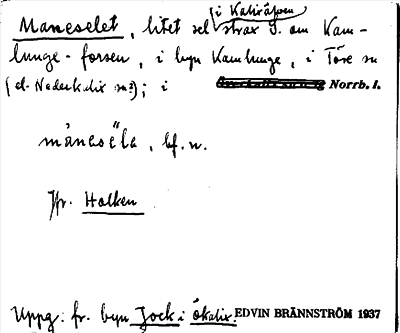 i Kalixälven
Maneselet, litet sel strax S. om Kam-
lunge-forsen, i byn Kamlunge, i Töre sn
(el. Nederkalix sn?); i Norrb. l.
månesëlą, bf. n.
Jfr. Halken
Uppg. fr. byn Jock i Ökalix. EDVIN BRÄNNSTRÖM 1937